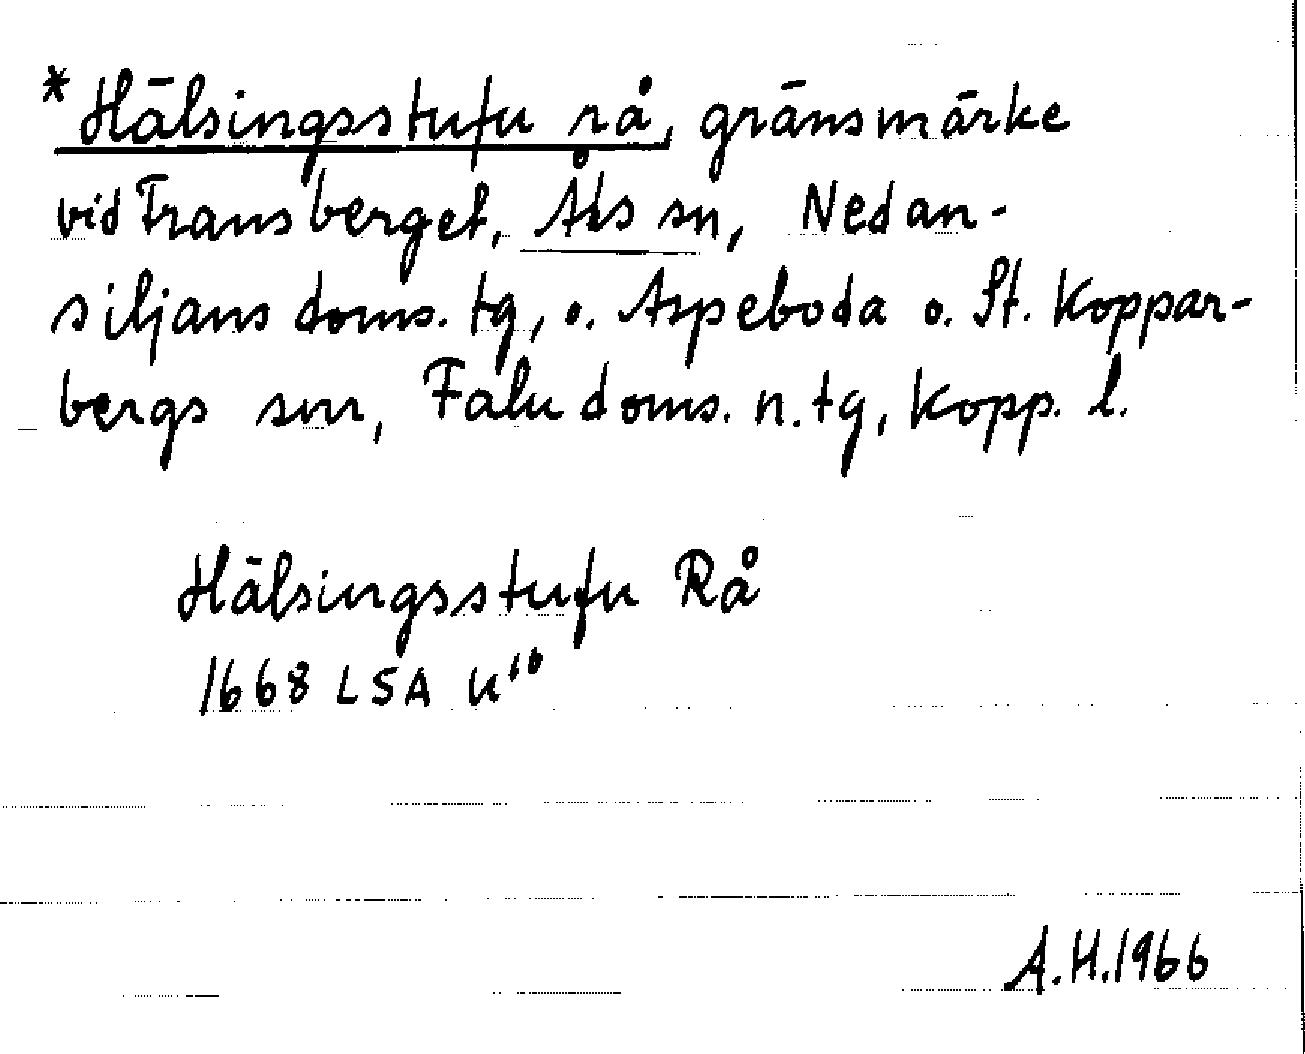 *Hälsingsstufu rå, gränsmärke
vid Transberget, Åls sn, Nedan-
siljans doms. tg, o. Aspeboda o. St. Koppar-
bergs snr, Falu doms. n. tg, Kopp. l.
Hälsingsstufu Rå
1668 LSA U¹⁰
A.H.1966